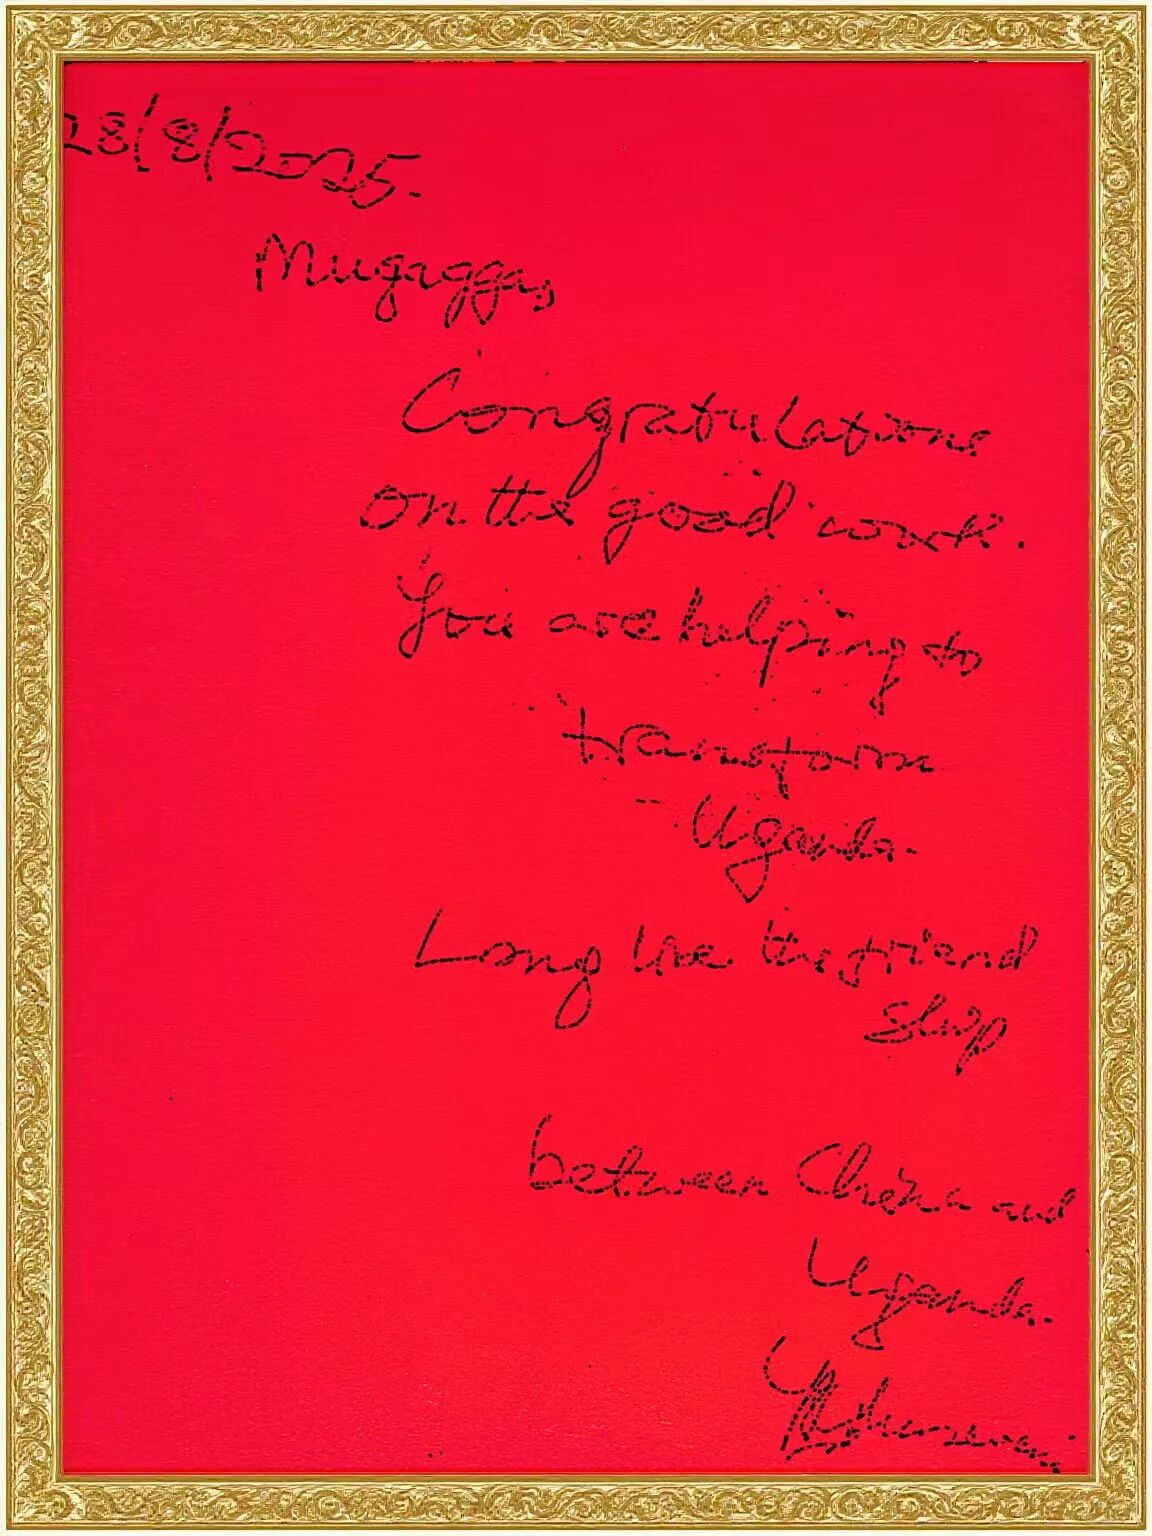 28/8/2025.
Mugagga,
Congratulations
on the good work.
You are helping to
transform
Uganda.
Long live the friend
ship
between China and
Uganda.